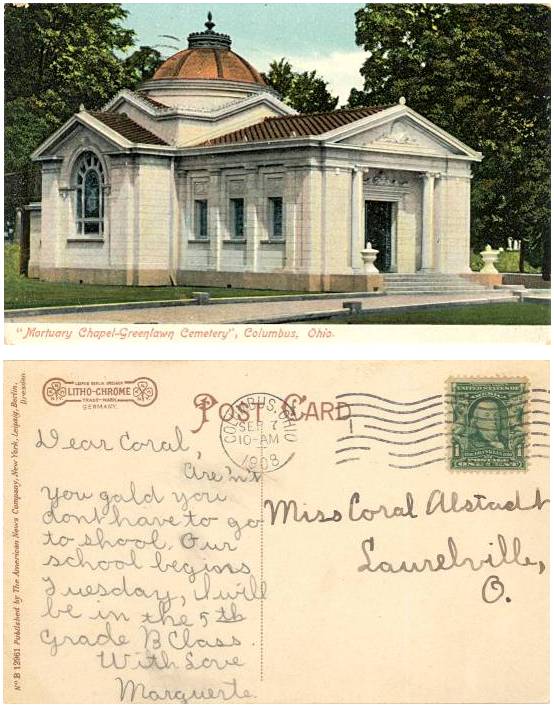 "Mortuary Chapel-Greenlawn Cemetery", Columbus, Ohio.
LEIPZIG BERLIN DRESDEN
LITHO-CHROME
TRADE-MARK
GERMANY.
POST CARD
COLUMBUS, OHIO
SEP 7
10-AM
1908
1
UNITED STATES OF AMERICA
1 1
POSTAGE
ONE CENT
Dear Coral,
Are'nt
you gald you
dont have to go
to shool. Our
school begins
Tuesday, i will
be in the 5th
Grade B Class.
With Love
Marguerte.
Miss Coral Alstadt
Laurelville,
O.
No. B 12961 Published by The American News Company, New York, Leipzig, Berlin,
Dresden.